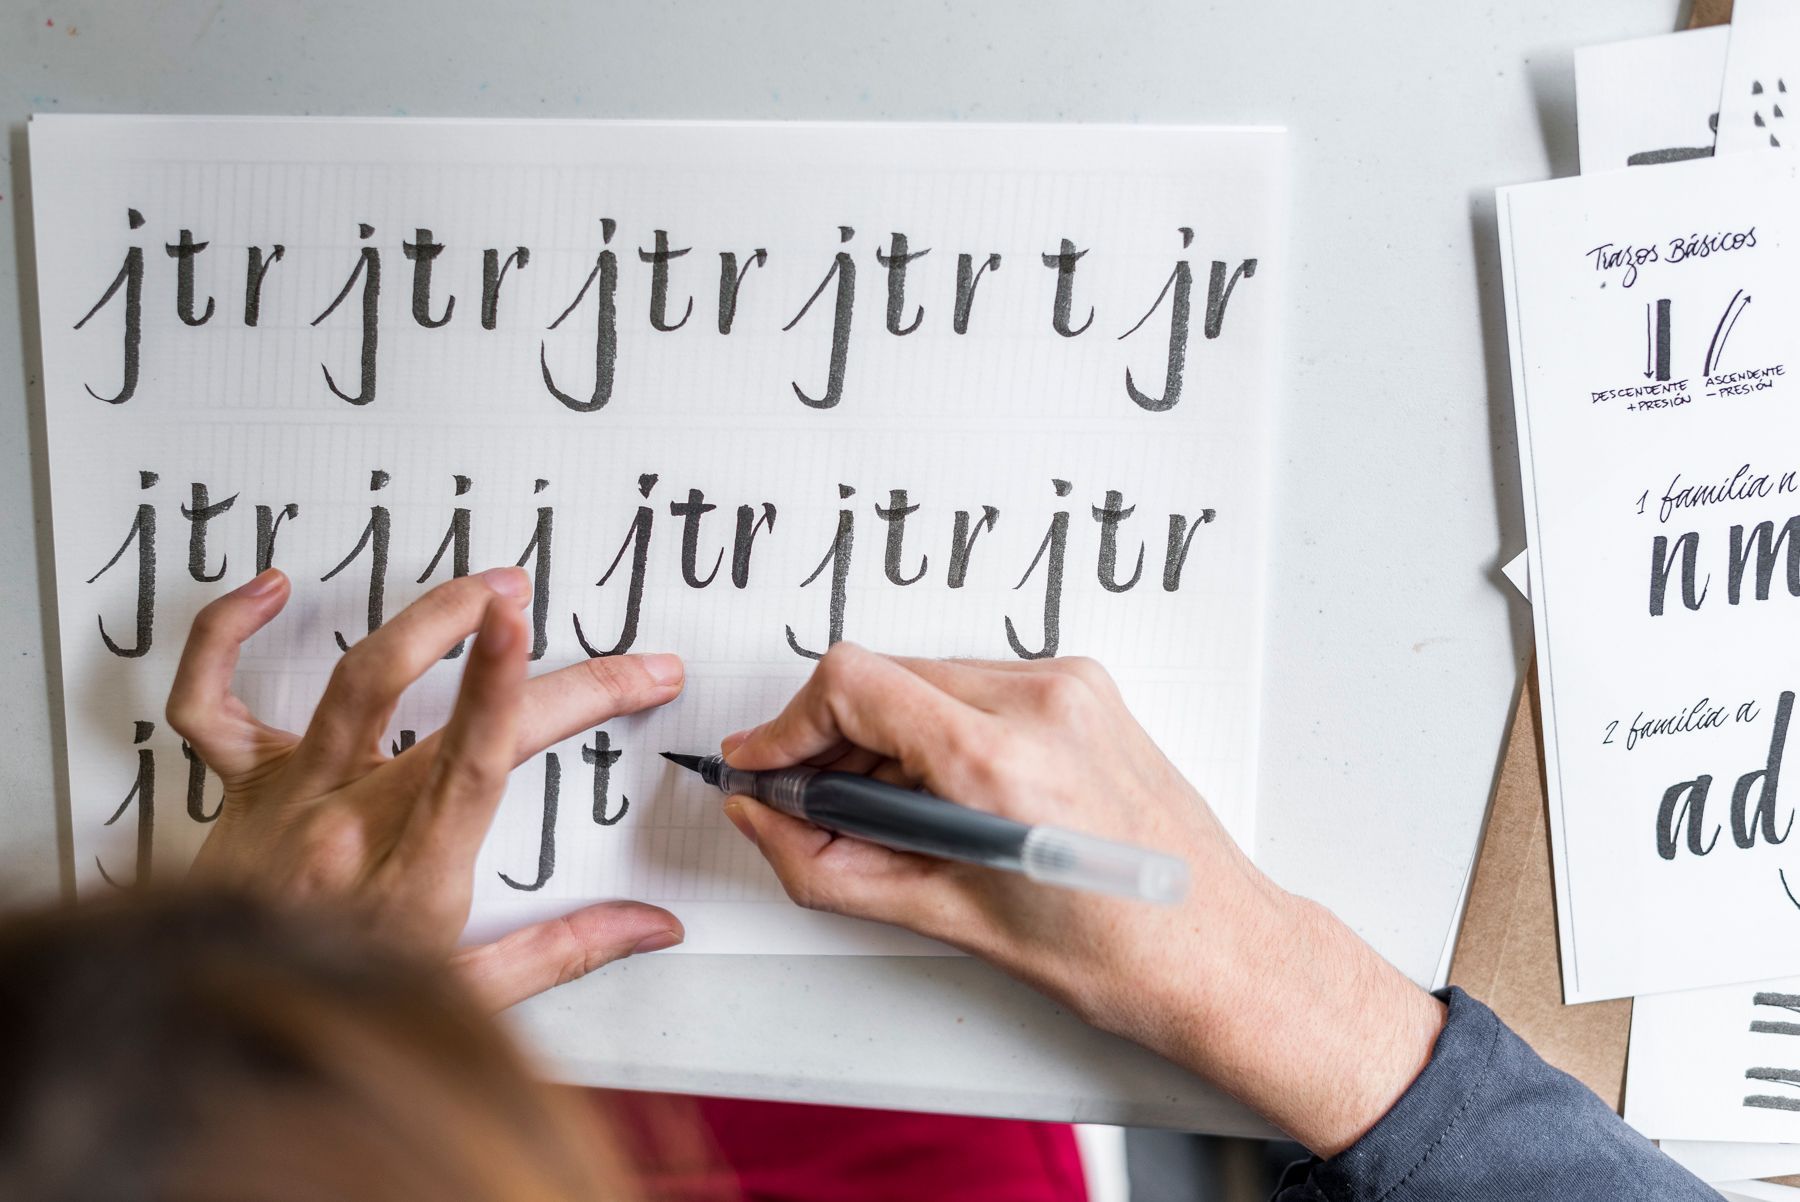 j t r j t r j t r j t r t j r
j t r j j j j t r j t r j t r
j t j t
Trazos Básicos
DESCENDENTE
+ PRESIÓN
ASCENDENTE
- PRESIÓN
1 familia n
n m
2 familia a
a d